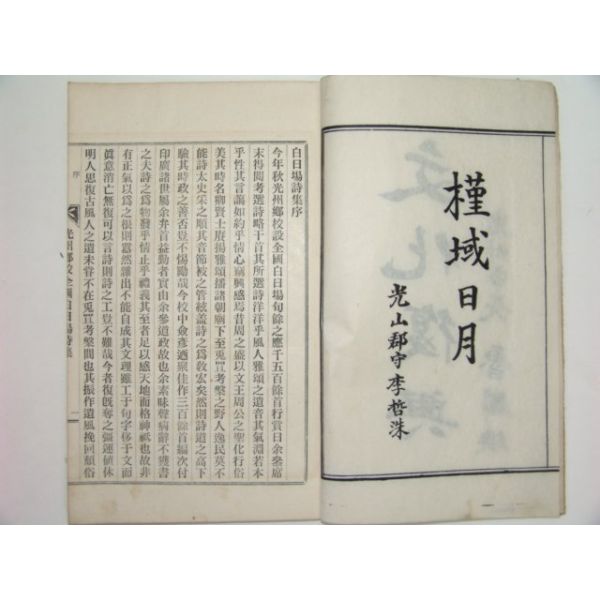 槿域日月
光山郡守李哲洙
白日場詩集序
今年秋光州鄕校設全國白日場旬餘之應千五百餘首行賞日余參席
末得聞考選詩略干首其所選詩洋洋乎風人雅頌之遺音其氣淵若本
乎性其言藹如約乎情心竊興感焉昔周之盛以文王周公之聖化行俗
美其時名卿賢士賡揚雅頌播諸朝廟下至兎罝考槃之野人逸民莫不
能詩太史采之順其音節被之管絃蓋詩之爲敎宏矣然則詩道之高下
驗其時政之善否豈不惕勵哉今校中僉彦廼聚佳作三百餘首編次付
印廣諸世屬余弁首益勤其實由余添政故也余素昧聲病辭不獲書
之夫詩之爲物發乎情止乎禮義其至者足以感天地而格神祇也故非
有正氣以爲之根則嚣然雜出不能自成其文理雖工于句字侈于文而
眞意消亡無復可以言詩則詩之工豈不難哉今者復旣奪之彊運偵休
明人思復古風人之遺未嘗不在兎罝考槃間也其振作遺風挽回頹俗
序
光州鄕校全國白日場詩集
一